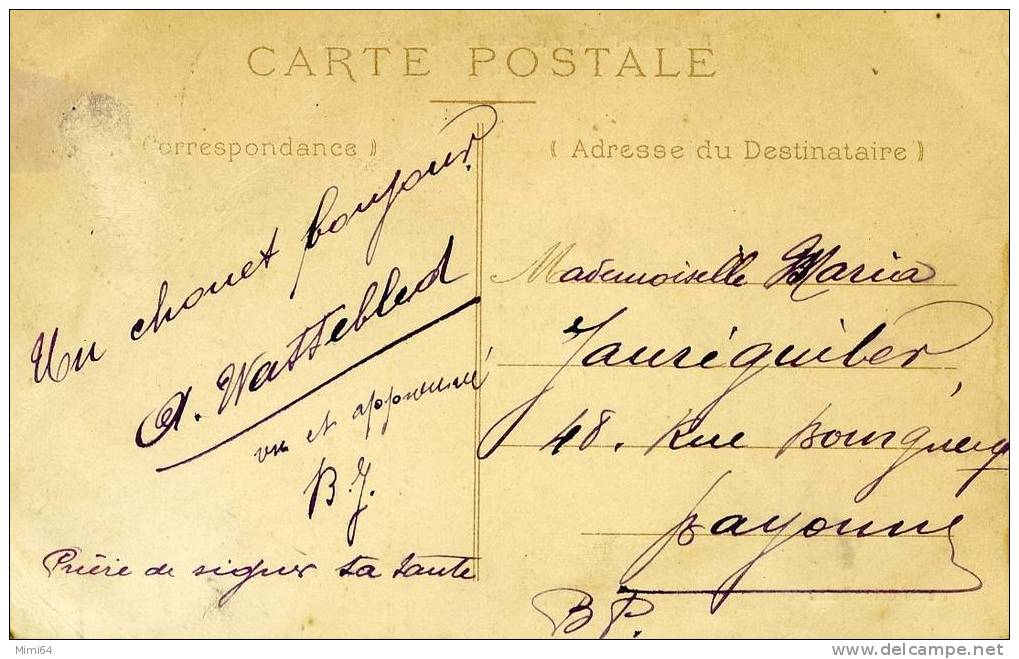 CARTE POSTALE
Correspondance )
( Adresse du Destinataire )
Un chouet bonjour
A. Wattebled
vu et approuvé
B. J.
Prière de signer ta tante
Mademoiselle Maria
Jauréguiber
48. Rue Bourgneuf
Bayonne
B P.
Mimi64
www.delcampe.net